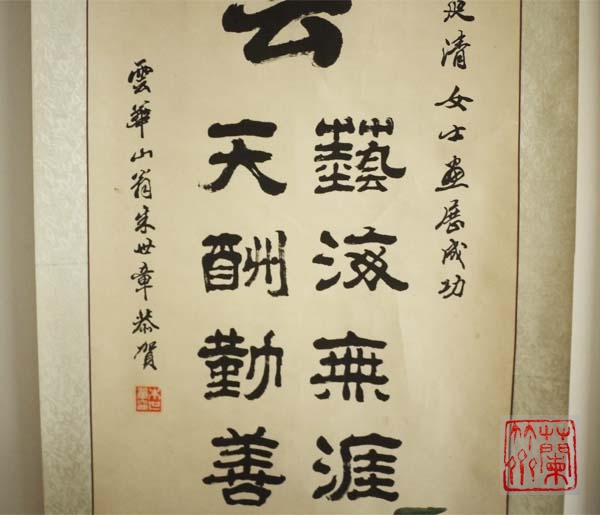 清女士畫展成功
藝海無涯
天酬勤善
雲華山翁朱世章恭賀
蘭